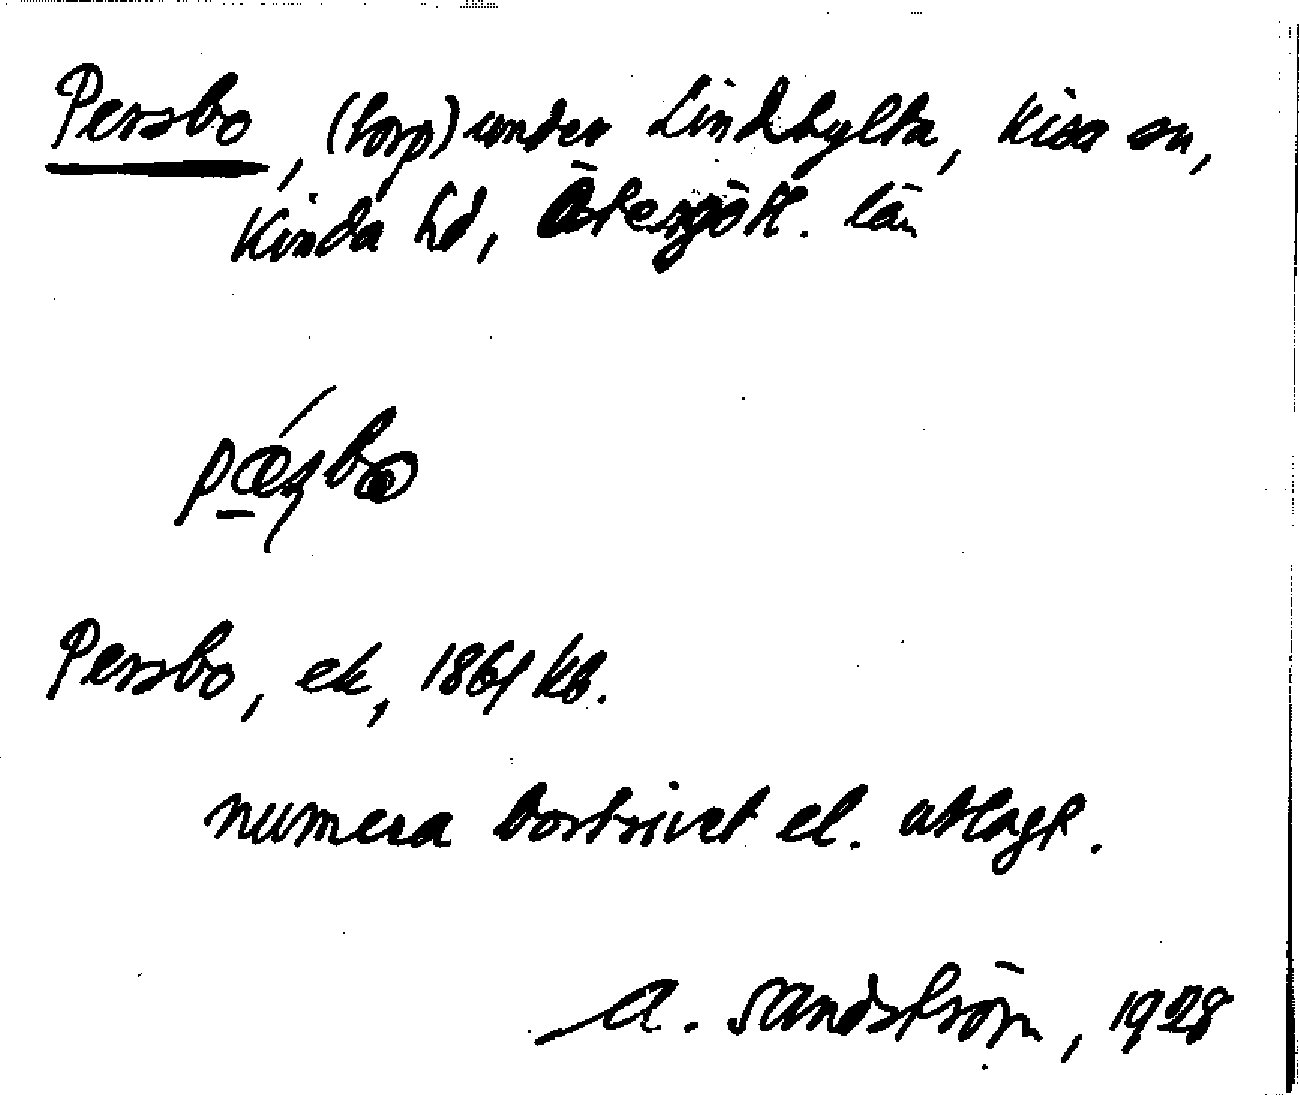 Persbo, (torp) under Lindhylta, Kisa sn,
Kinda hd, Östergötl. län
Persbo, ek, 1861 kb.
numera bortrivet el. utlagt.
A. Sandström, 1928